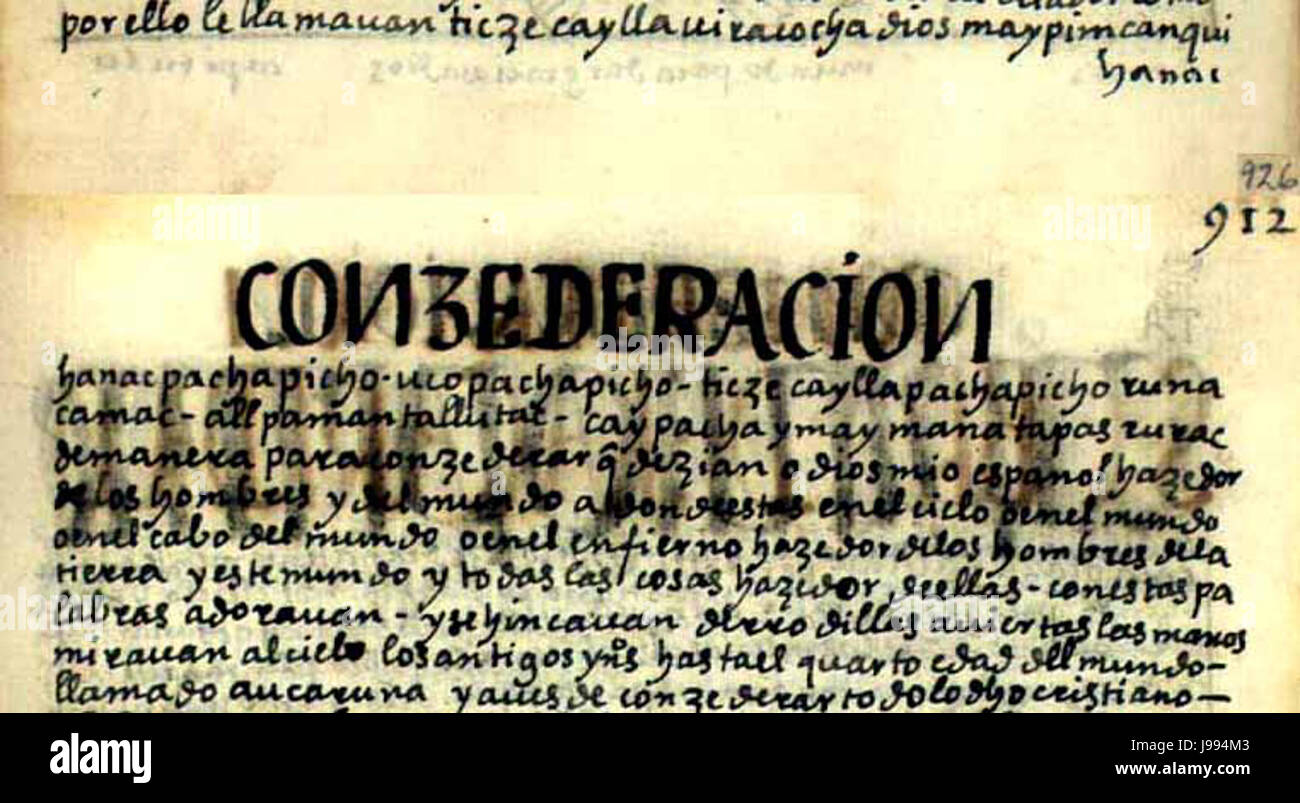 por ello le llamauan ticze caylla uiracocha dios maypim canqui
hanac
926
912
CONZEDERACION
hanac pachapicho - uco pachapicho - ticze caylla pachapicho runa
camac - allpamanta llutac - cay pacha ymaymana tapas rurac
de manera para conzederar q̃ dezian o dios mio español hazedor
de los hombres y del mundo adonde estas en el cielo o en el mundo
o en el cabo del mundo o en el enfierno hazedor de los hombres de la
tierra y este mundo y todas las cosas hazedor de ellas - con estas pa
labras adorauan - y se hincauan de rrodillas auiertas las manos
mirauan al cielo los antigos yns hasta el quarto edad del mundo -
llamado aucaruna y aues de conzederar todo lo dho cristiano -
alamy
J994M3
www.alamy.com